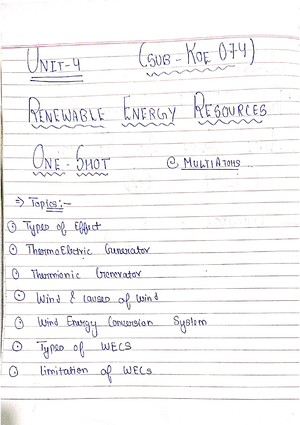 UNIT-4 (SUB - KOE 074)
RENEWABLE ENERGY RESOURCES
ONE - SHOT @ MULTIATOMS
=> Topics:-
Types of Effect
ThermoElectric Generator
Thermionic Generator
Wind & causes of wind
Wind Energy Conversion System
Types of WECS
limitation of WECs